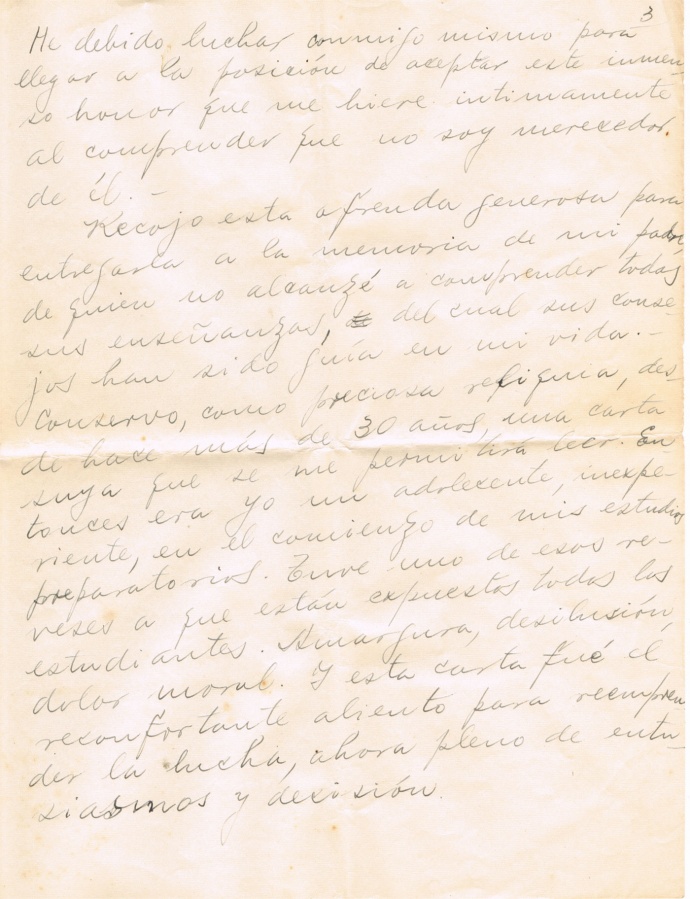 3
He debido luchar conmigo mismo para
llegar a la posición de aceptar este inmen-
so honor que me hiere intimamente
al comprender que no soy merecedor
de él. -
Recojo esta ofrenda generosa para
entregarla a la memoria de mi padre,
de quien no alcanzé a comprender todas
sus enseñanzas, del cual sus conse-
jos han sido guía en mi vida. -
Conservo, como preciosa reliquia, des-
de hace más de 30 años, una carta
suya que se me permitirá leer. En
tonces era yo un adolecente, inexpe-
riente, en el comienzo de mis estudios
preparatorios. Tuve uno de esos re-
veses a que están expuestos todos los
estudiantes. Amargura, desilusión,
dolor moral. Y esta carta fué el
reconfortante aliento para reempren
der la lucha, ahora pleno de entu-
siasmos y decisión.